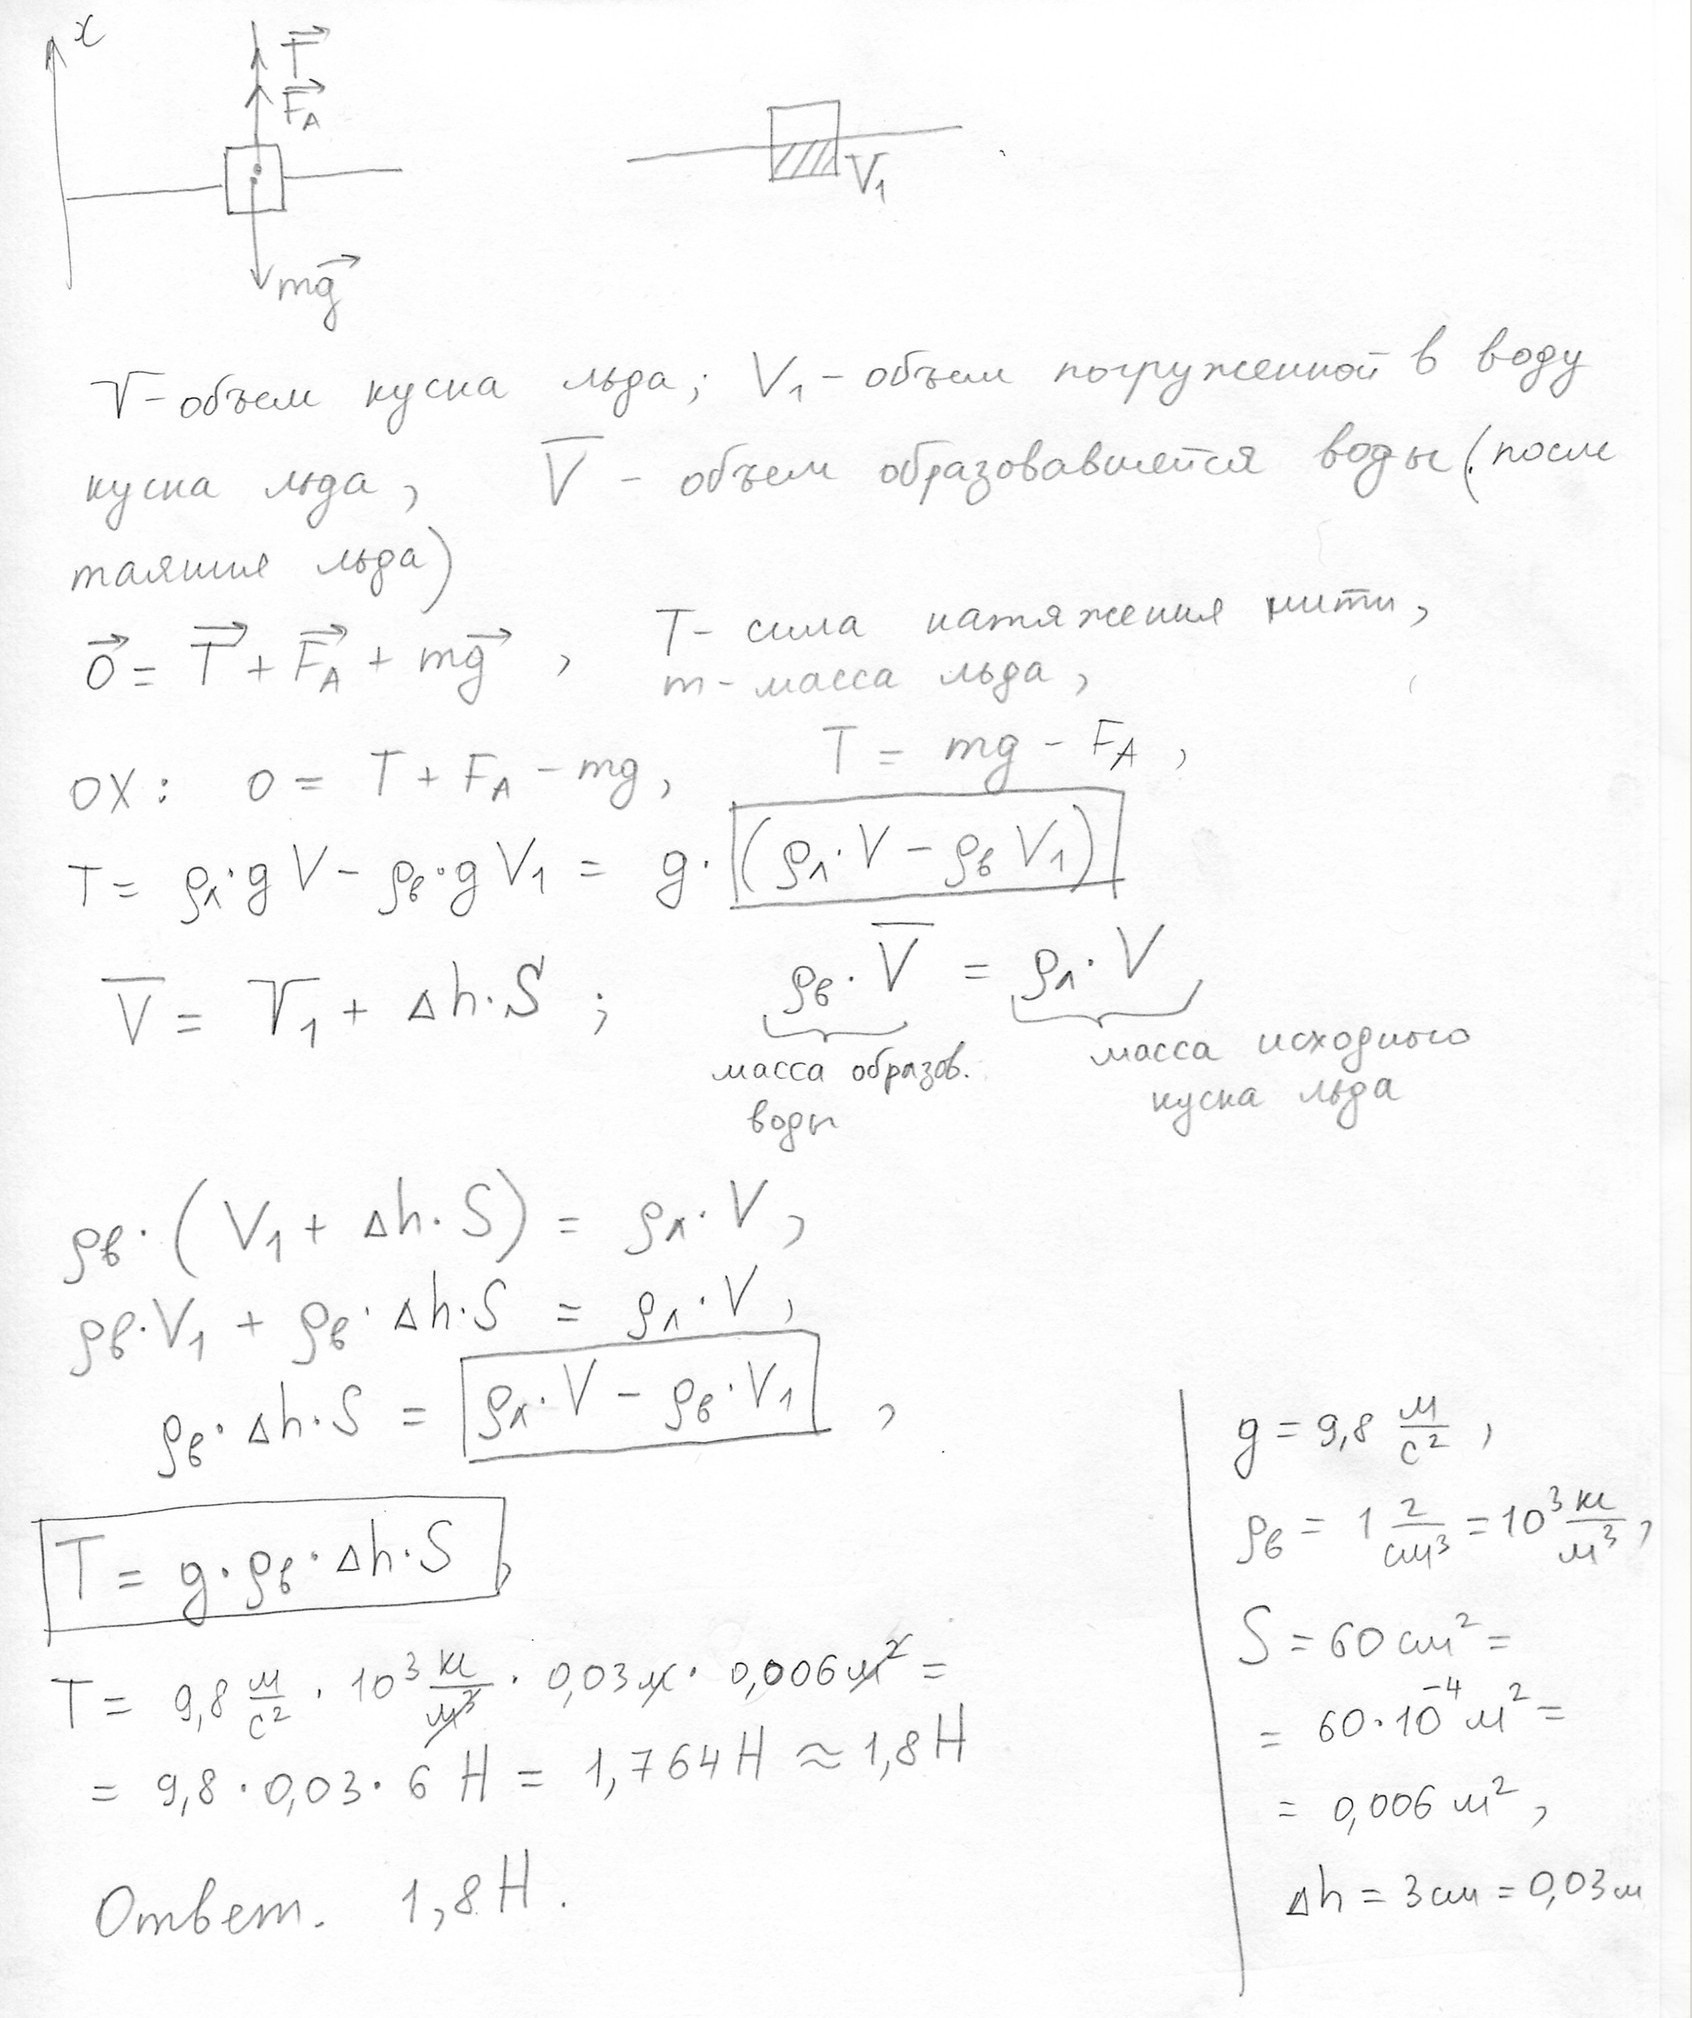 x
T⃗
F⃗_A
V₁
mg⃗
V - объем куска льда; V₁ - объем погруженной в воду
куска льда, V̅ - объем образовавшейся воды (после
таяния льда)
0⃗ = T⃗ + F⃗_A + mg⃗, T - сила натяжения нити,
m - масса льда,
OX: 0 = T + F_A - mg, T = mg - F_A,
T = ρл·gV - ρв·gV₁ = g·(ρл·V - ρвV₁)
V̅ = V₁ + Δh·S; ρв·V̅ = ρл·V
масса образов. масса исходного
воды куска льда
ρв·(V₁ + Δh·S) = ρл·V,
ρв·V₁ + ρв·Δh·S = ρл·V,
ρв·Δh·S = ρл·V - ρв·V₁,
T = g·ρв·Δh·S,
T = 9,8 м/с² · 10³ кг/м³ · 0,03м · 0,006м² =
= 9,8·0,03·6 Н = 1,764Н ≈ 1,8Н
Ответ. 1,8Н.
g = 9,8 м/с²,
ρв = 1 г/см³ = 10³ кг/м³,
S = 60 см² =
= 60·10⁻⁴ м² =
= 0,006 м²,
Δh = 3см = 0,03м